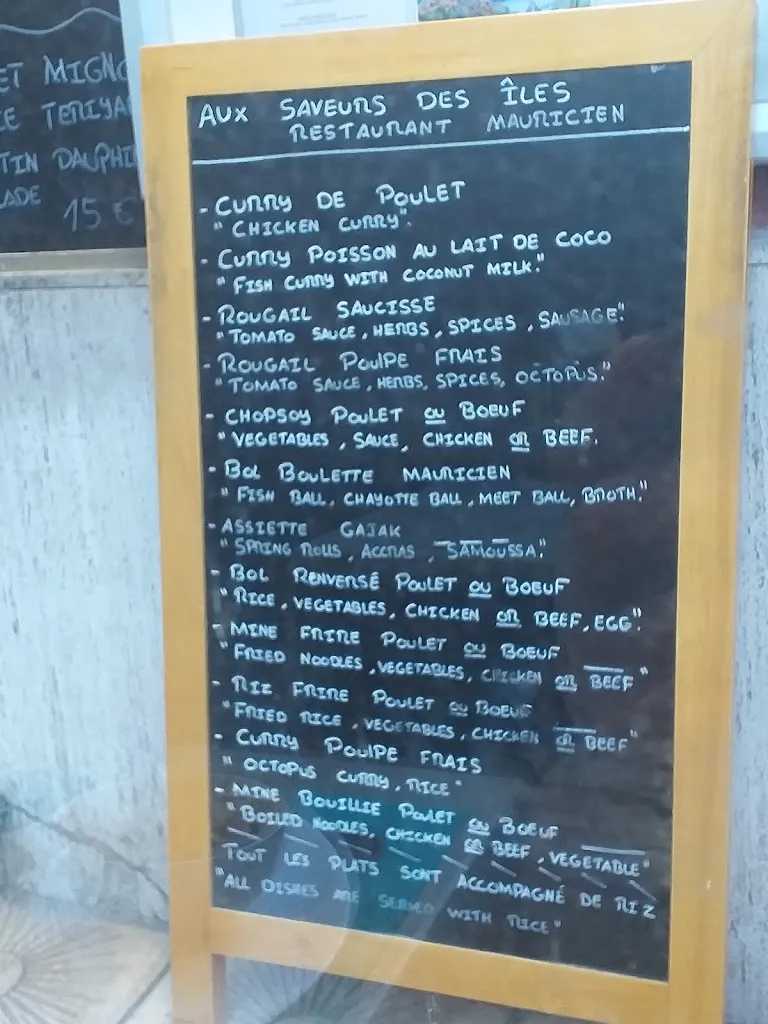 ET MIGNO
TERIYA
TIN DAUPHI
LADE
15 €
AUX SAVEURS DES ÎLES
RESTAURANT MAURICIEN
- CURRY DE POULET
" CHICKEN CURRY".
- CURRY POISSON AU LAIT DE COCO
" FISH CURRY WITH COCONUT MILK."
- ROUGAIL SAUCISSE
"TOMATO SAUCE, HERBS, SPICES, SAUSAGE".
- ROUGAIL POULPE FRAIS
"TOMATO SAUCE, HERBS, SPICES, OCTOPUS."
- CHOPSOY POULET OU BOEUF
" VEGETABLES, SAUCE, CHICKEN OR BEEF.
- BOL BOULETTE MAURICIEN
" FISH BALL, CHAYOTTE BALL, MEET BALL, BROTH."
- ASSIETTE GAJAK
"SPRING ROLLS, ACCRAS, SAMOUSSA."
- BOL RENVERSÉ POULET OU BOEUF
"RICE, VEGETABLES, CHICKEN OR BEEF, EGG".
- MINE FRIRE POULET OU BOEUF
"FRIED NOODLES, VEGETABLES, CHICKEN OR BEEF"
- RIZ FRIRE POULET OU BOEUF
"FRIED RICE, VEGETABLES, CHICKEN OR BEEF"
- CURRY POULPE FRAIS
" OCTOPUS CURRY, RICE"
- MINE BOUILLIE POULET OU BOEUF
"BOILED NOODLES, CHICKEN OR BEEF, VEGETABLE"
TOUT LES PLATS SONT ACCOMPAGNÉ DE RIZ
"ALL DISHES ARE SERVED WITH RICE"